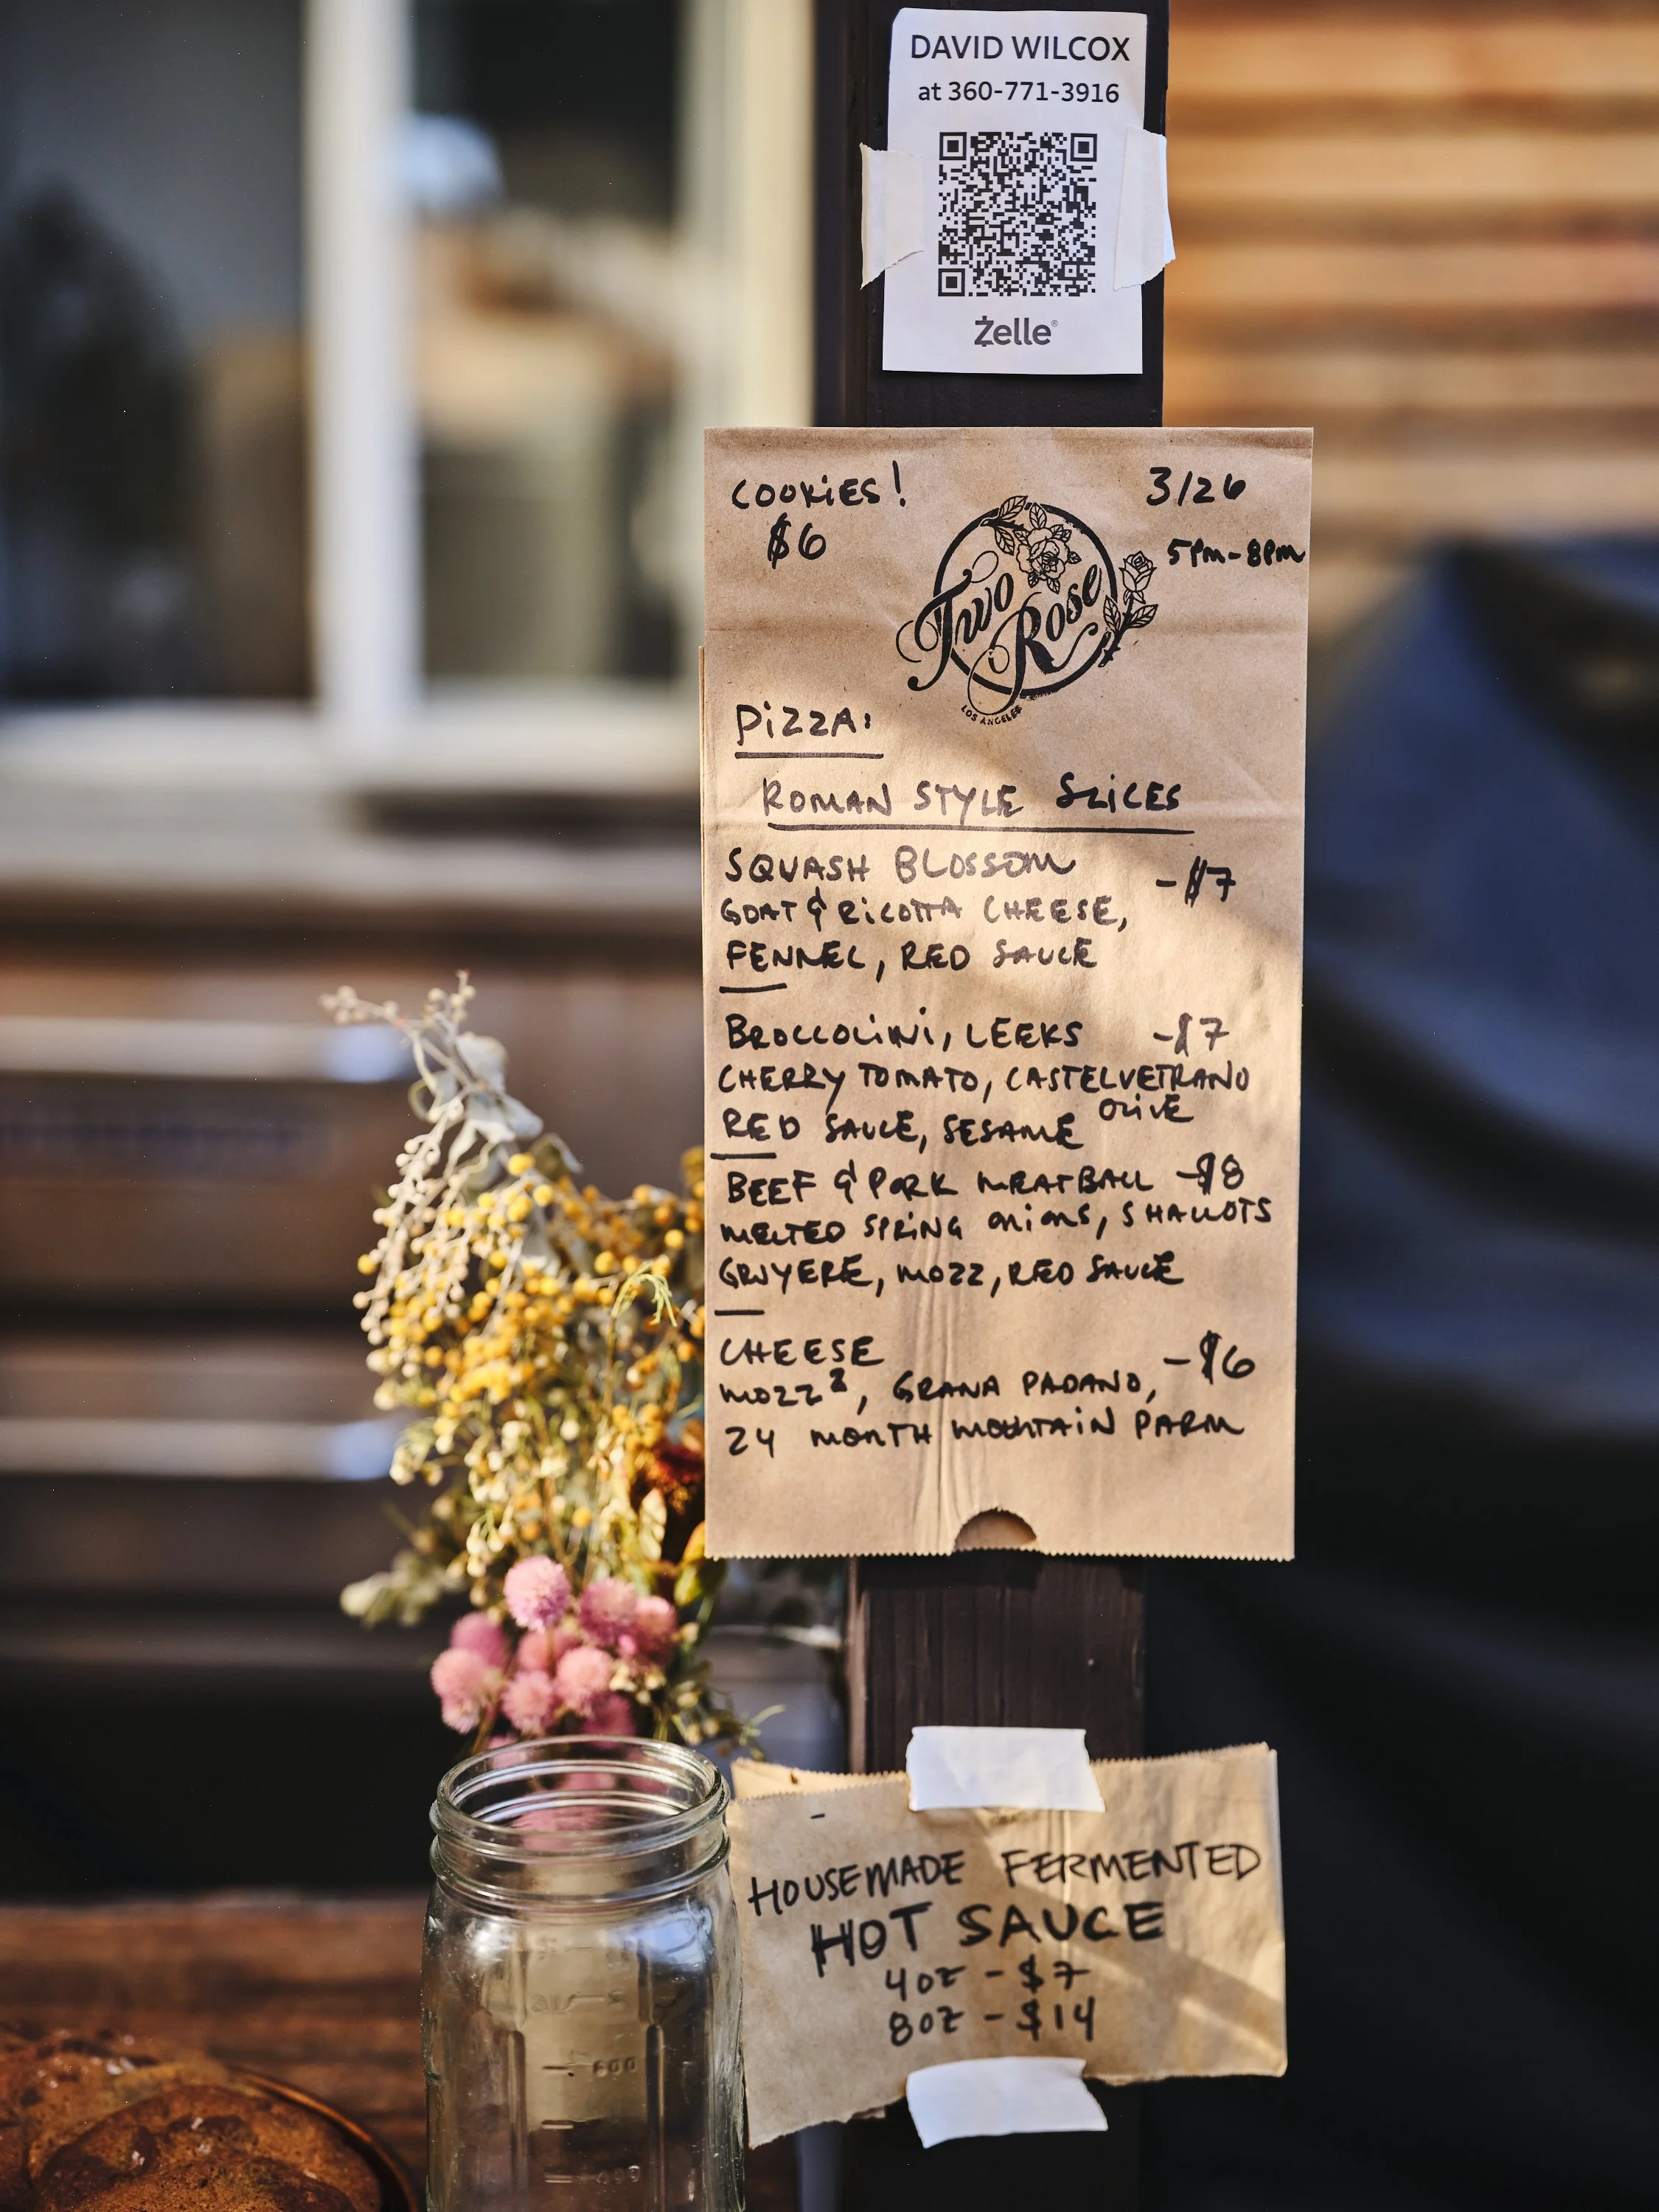 DAVID WILCOX
at 360-771-3916
Zelle®
COOKiES!
$6
3/26
5PM-8PM
Two
Rose
LOS ANGELES
PiZZA:
ROMAN STYLE SLiCES
SQUASH BLOSSOM -$7
GOAT & RiCOTTA CHEESE,
FENNEL, RED SAUCE
BROCCOLiNi, LEEKS -$7
CHERRY TOMATO, CASTELVETRANO
OLiVE
RED SAUCE, SESAME
BEEF & PORK MEATBALL -$8
MELTED SPRiNG ONiONS, SHALLOTS
GRUYERE, MOZZ, RED SAUCE
CHEESE -$6
MOZZ², GRANA PADANO,
24 MONTH MOUNTAiN PARM
HOUSEMADE FERMENTED
HOT SAUCE
4OZ - $7
8OZ - $14
600
400